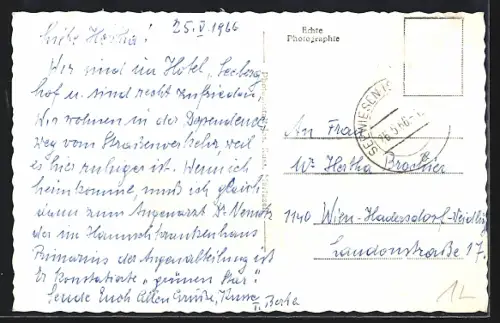 25.V.1966
Liebe Hertha!
Wir sind im Hotel "Seeberg
hof u. sind recht zufrieden.
Wir wohnen in der Dependence
weg vom Straßenverkehr, weil
es hier ruhiger ist. Wenn ich
heimkomme, muß ich gleich
dann zum Augenarzt Dr.
der im Hanuschkrankenhaus
Primarius der Augenabteilung ist
Er konstatierte "grünen Star".
Sende Euch Allen Grüße, Küsse
Berta
Echte
Photographie
SEEWIESEN
26.5.66
An Frau
Hertha
1140 Wien-Hadersdorf-Weidling
Laudonstraße 17.
1L